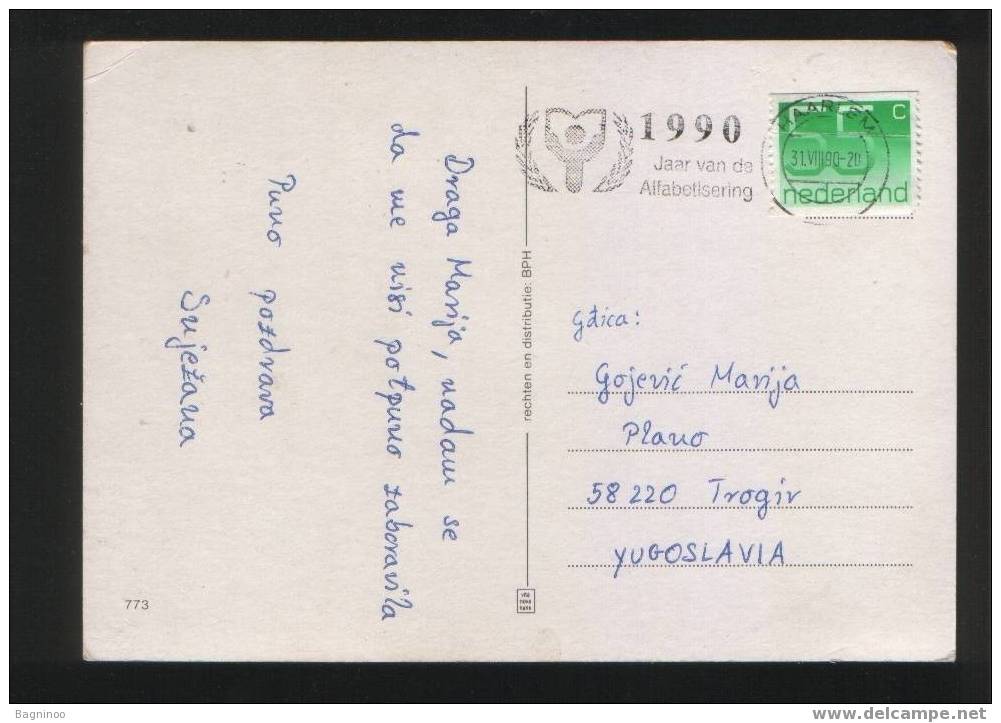 Draga Marija, nadam se
da me nisi potpuno zaboravila
Puno pozdrava
Snježana
773
rechten en distributie: BPH
1990
Jaar van de
Alfabetisering
HAARLEM
31.VIII.90-20
55 C
nederland
gđica:
Gojević Marija
Plano
58220 Trogir
YUGOSLAVIA
Bagninoo
www.delcampe.net